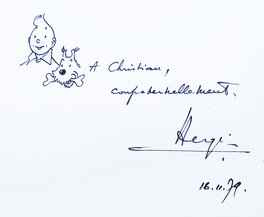 A Christian,
confraternellement.
Hergé
16.11.79.